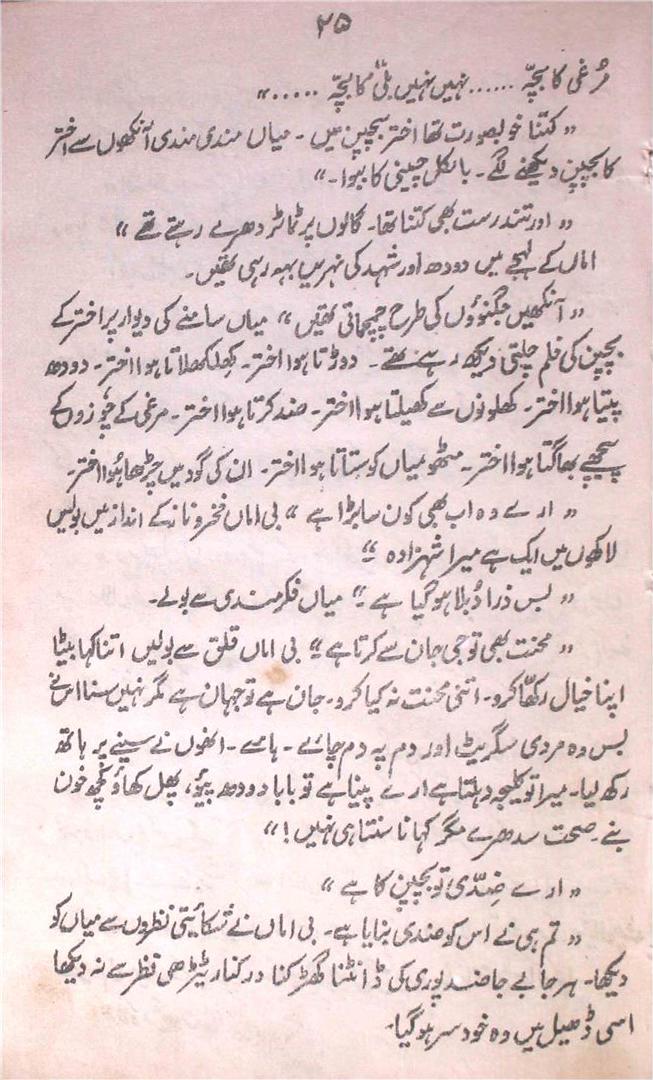 ۲۵
مُرغی کا بچّہ ...... نہیں نہیں بلّی کا بچّہ .....“
”کتنا خوبصورت تھا اختر بچپن میں۔ میاں مندی مندی آنکھوں سے اختر
کا بچپن دیکھنے لگے۔ بالکل چینی کا ببوا۔“
”اور تندرست بھی کتنا تھا۔ گالوں پر ٹماٹر دھرے رہتے تھے“
اماں کے لہجے میں دودھ اور شہد کی نہریں بہہ رہی تھیں۔
”آنکھیں جگنوؤں کی طرح چمچماتی تھیں“ میاں سامنے کی دیوار پر اختر کے
بچپن کی فلم چلتی دیکھ رہے تھے۔ دوڑتا ہوا اختر۔ کھلکھلاتا ہوا اختر۔ دودھ
پیتا ہوا اختر۔ کھلونوں سے کھیلتا ہوا اختر۔ ضد کرتا ہوا اختر۔ مرغی کے چوزوں کے
پیچھے بھاگتا ہوا اختر۔ مٹھو میاں کو ستاتا ہوا اختر۔ ان کی گود میں چڑھا ہُوا اختر۔
”ارے وہ اب بھی کون سا بڑا ہے“ بی اماں فخر و ناز کے انداز میں بولیں
لاکھوں میں ایک ہے میرا شہزادہ“
”بس ذرا دُبلا ہو گیا ہے“ میاں فکر مندی سے بولے۔
”محنت بھی تو جی جان سے کرتا ہے“ بی اماں قلق سے بولیں اتنا کہا بیٹا
اپنا خیال رکھّا کرو۔ اتنی محنت نہ کیا کرو۔ جان ہے تو جہان ہے مگر نہیں سنا اس نے
بس وہ مردی سگریٹ اور دم پہ دم چائے۔ ہائے۔ انھوں نے سینے پر ہاتھ
رکھ لیا۔ میرا تو کلیجہ دہلتا ہے ارے پینا ہے تو بابا دودھ پیئو، پھل کھاؤ کچھ خون
بنے۔ صحت سدھرے مگر کہانا سنتا ہی نہیں!“
”ارے ضِدّی تو بچپن کا ہے“
”تم ہی نے اس کو ضدی بنایا ہے۔ بی اماں نے شکائیتی نظروں سے میاں کو
دیکھا۔ ہر جا بے جا ضد پوری کی ڈانٹنا گھڑکنا درکنار ٹیڑھی نظر سے نہ دیکھا
اسی ڈھیل میں وہ خود سر ہو گیا۔